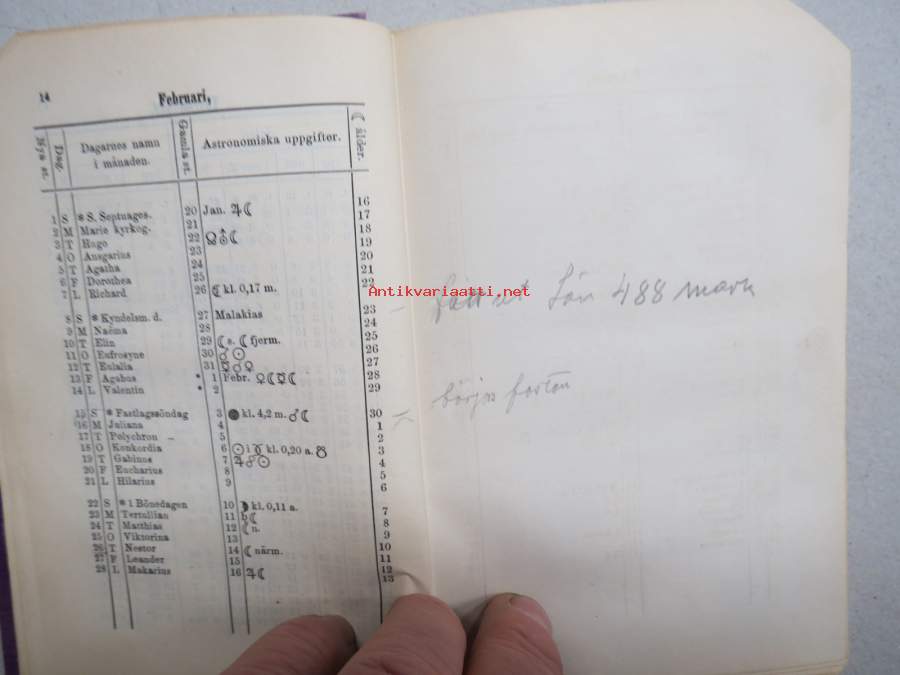 14
Februari,
Nya st. Dag. Dagarnes namn i månaden. Gamla st. Astronomiska uppgifter. ☾ ålder.
16
1 S * S. Septuages. 20 Jan. ♃☾ 17
2 M Marie kyrkog. 21 18
3 T Hugo 22 19
4 O Ansgarius 23 20
5 T Agatha 24 21
6 F Dorothea 25 22
7 L Richard 26 ☾ kl. 0,17 m.
8 S * Kyndelsm. d. 27 Malakias 23
9 M Naëma 28 24
10 T Elin 29 ☾ s. ☾ fjerm. 25
11 O Eufrosyne 30 ☌ ☉ 26
12 T Eulalia 31 ☿ ☌ ♀ 27
13 F Agabus 1 Febr. ♀☾☿☾ 28
14 L Valentin 2 29
15 S * Fastlagssöndag 3 ● kl. 4,2 m. ♂☾ 30
16 M Juliana 4 1
17 T Polychron 5 2
18 O Konkordia 6 ☉ i kl. 0,20 a. 3
19 T Gabinus 7 ♃☍☉ 4
20 F Eucharius 8 5
21 L Hilarius 9 6
22 S * 1 Bönedagen 10 kl. 0,11 a. 7
23 M Tertullian 11 ♄☾ 8
24 T Matthias 12 ☾ n. 9
25 O Viktorina 13 10
26 T Nestor 14 ☾ närm. 11
27 F Leander 15 12
28 L Makarius 16 ♃☾ 13
Antikvariaatti.net
488 mark
börjas